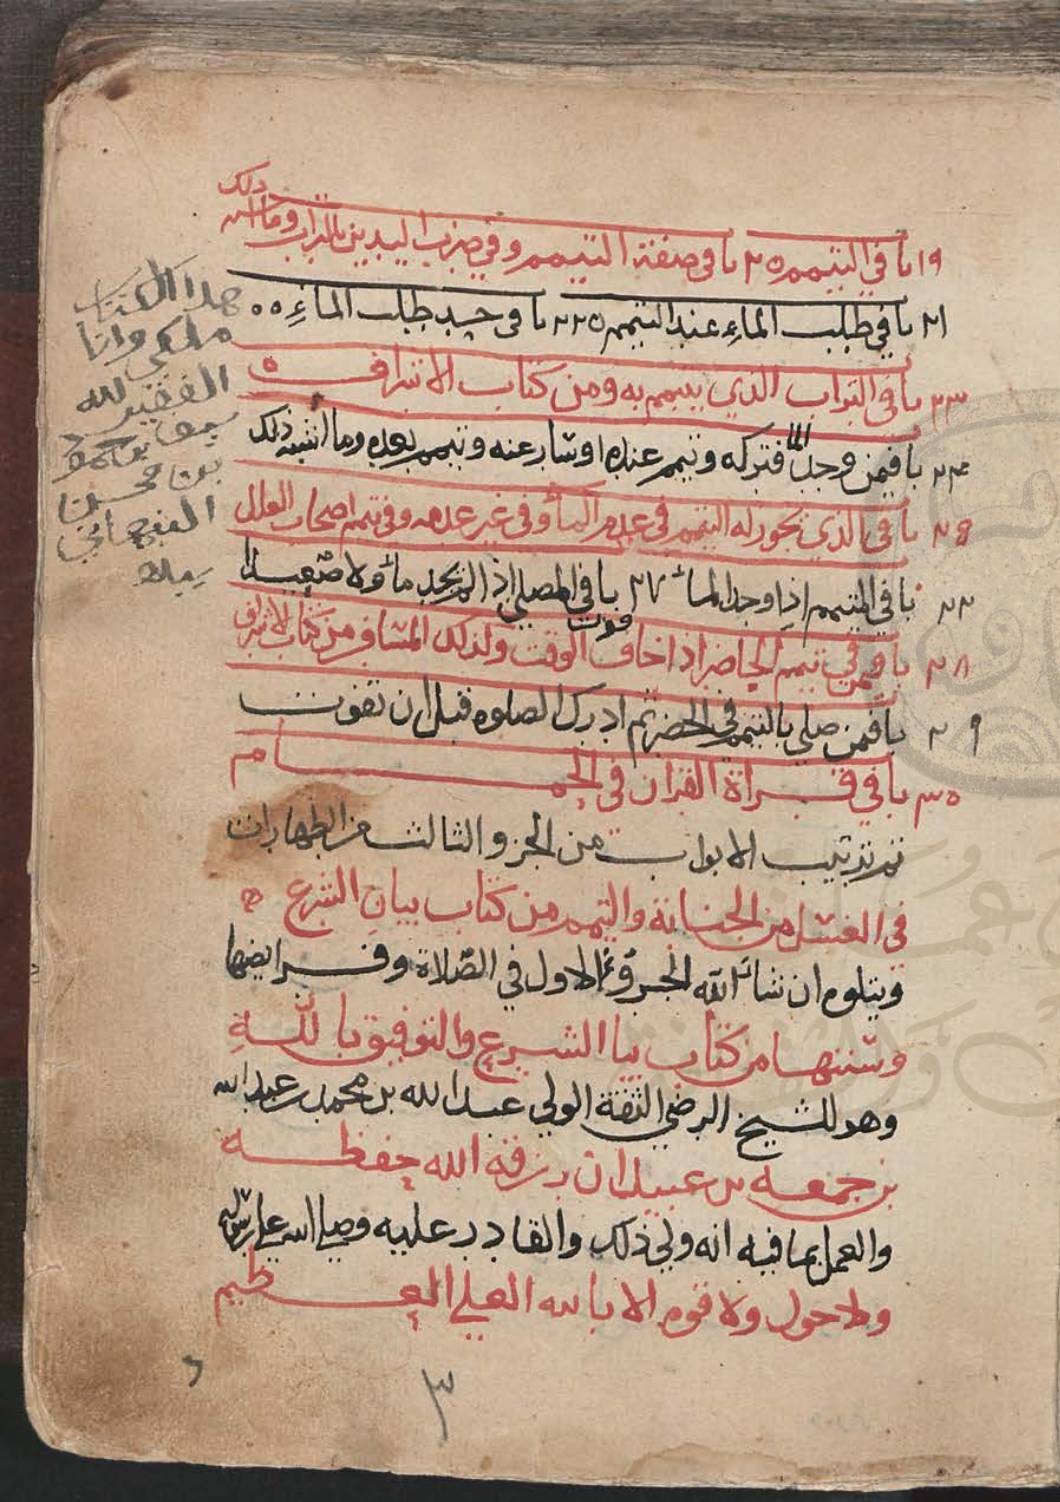 ١٩ با في التيمم ٢٠ با في صفة التيمم وفي ضرب اليدين بالتراب وما اشبه ذلك
٢١ با في طلب الماء عند التيمم ٢٢ با في حد طلب الماء
٢٣ با في التراب الذي يتيمم به ومن كتاب الاشراف
٢٤ با فيمن وجد الماء فتركه وتيمم عنده او سار عنه وتيمم بعده وما اشبه ذلك
٢٥ با في الذي يجوز له التيمم في عدم الماء وفي غير عدمه وفي تيمم اصحاب العلل
٢٦ با في المتيمم اذا وجد الماء ٢٧ با في المصلي اذا لم يجد ماء ولا صعيدا
٢٨ با في تيمم الحاضر اذا خاف فوت الوقت ولذلك المسافر من كتاب الاشراف
٢٩ با فيمن صلى بالتيمم في الحضر ثم ادرك الصلوة قبل ان تفوت
٣٠ با في قراة القران في الحمام
تم ترتيب الابواب من الجزو الثالث من الطهارات
في الغسل من الجنابة والتيمم من كتاب بيان الشرع
ويتلوه ان شاء الله الجزو الاول في الصلاة وفرايضها
وسننها من كتاب بيا الشرع والتوفيق بالله
وهو للشيخ الرضي الثقة الولي عبد الله بن محمد بن عبد الله
بن جمعه بن عبيدان رزقه الله حفظه
والعمل بما فيه انه ولي ذلك والقادر عليه وصلى الله على رسوله
ولا حول ولا قوه الا بالله العلي العظيم
هذا الكتاب
ملكي وانا
الفقير لله
بن محسن
بيده
٣